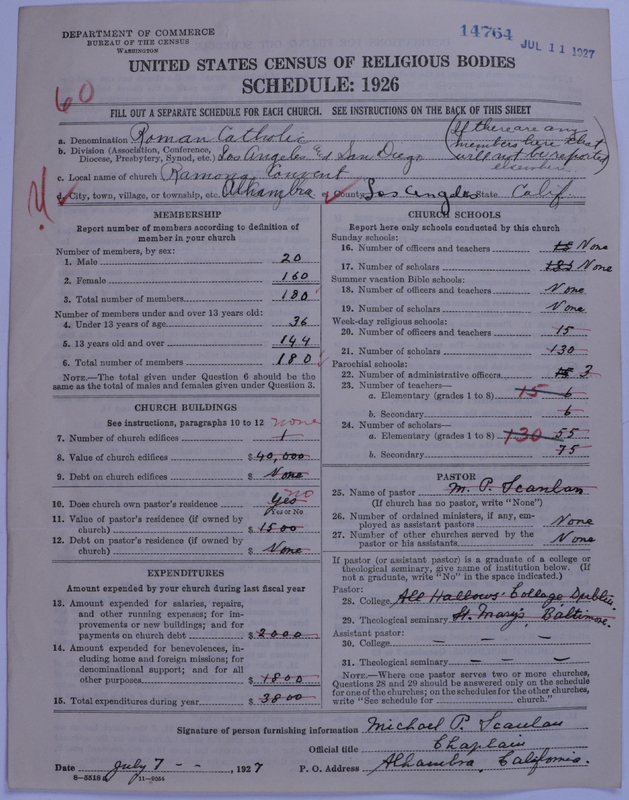 DEPARTMENT OF COMMERCE
BUREAU OF THE CENSUS
WASHINGTON
14764
JUL 11 1927
UNITED STATES CENSUS OF RELIGIOUS BODIES
SCHEDULE: 1926
60
FILL OUT A SEPARATE SCHEDULE FOR EACH CHURCH. SEE INSTRUCTIONS ON THE BACK OF THIS SHEET
a. Denomination Roman Catholic
(If there are any members here that will not be reported elsewhere)
b. Division (Association, Conference, Diocese, Presbytery, Synod, etc.) Los Angeles & San Diego
c. Local name of church Ramona Convent
d. City, town, village, or township, etc. Alhambra or County Los Angeles State Calif.
MEMBERSHIP
Report number of members according to definition of member in your church
Number of members, by sex:
1. Male 20
2. Female 160
3. Total number of members 180
Number of members under and over 13 years old:
4. Under 13 years of age 36
5. 13 years old and over 144
6. Total number of members 180
NOTE.—The total given under Question 6 should be the same as the total of males and females given under Question 3.
CHURCH BUILDINGS
See instructions, paragraphs 10 to 12 none
7. Number of church edifices 1
8. Value of church edifices $ 40,000
9. Debt on church edifices $ None
10. Does church own pastor's residence Yes no
Yes or No
11. Value of pastor's residence (if owned by church) $ 1500
12. Debt on pastor's residence (if owned by church) $ None
EXPENDITURES
Amount expended by your church during last fiscal year
13. Amount expended for salaries, repairs, and other running expenses; for improvements or new buildings; and for payments on church debt $ 2000
14. Amount expended for benevolences, including home and foreign missions; for denominational support; and for all other purposes $ 1800
15. Total expenditures during year $ 3800
CHURCH SCHOOLS
Report here only schools conducted by this church
Sunday schools:
16. Number of officers and teachers 15 None
17. Number of scholars None
Summer vacation Bible schools:
18. Number of officers and teachers None
19. Number of scholars None
Week-day religious schools:
20. Number of officers and teachers 15
21. Number of scholars 130
Parochial schools:
22. Number of administrative officers 15 3
23. Number of teachers—
a. Elementary (grades 1 to 8) 15 6
b. Secondary 6
24. Number of scholars—
a. Elementary (grades 1 to 8) 130 55
b. Secondary 75
PASTOR
25. Name of pastor M. P. Scanlan
(If church has no pastor, write "None")
26. Number of ordained ministers, if any, employed as assistant pastors None
27. Number of other churches served by the pastor or his assistants None
If pastor (or assistant pastor) is a graduate of a college or theological seminary, give name of institution below. (If not a graduate, write "No" in the space indicated.)
Pastor:
28. College All Hallows' College Dublin.
29. Theological seminary St. Mary's, Baltimore.
Assistant pastor:
30. College — — —
31. Theological seminary — — —
NOTE.—Where one pastor serves two or more churches, Questions 28 and 29 should be answered only on the schedule for one of the churches; on the schedules for the other churches, write "See schedule for church."
Signature of person furnishing information Michael P. Scanlan
Official title Chaplain
Date July 7 - - , 1927 P. O. Address Alhambra, California.
8-5518a 11-9054